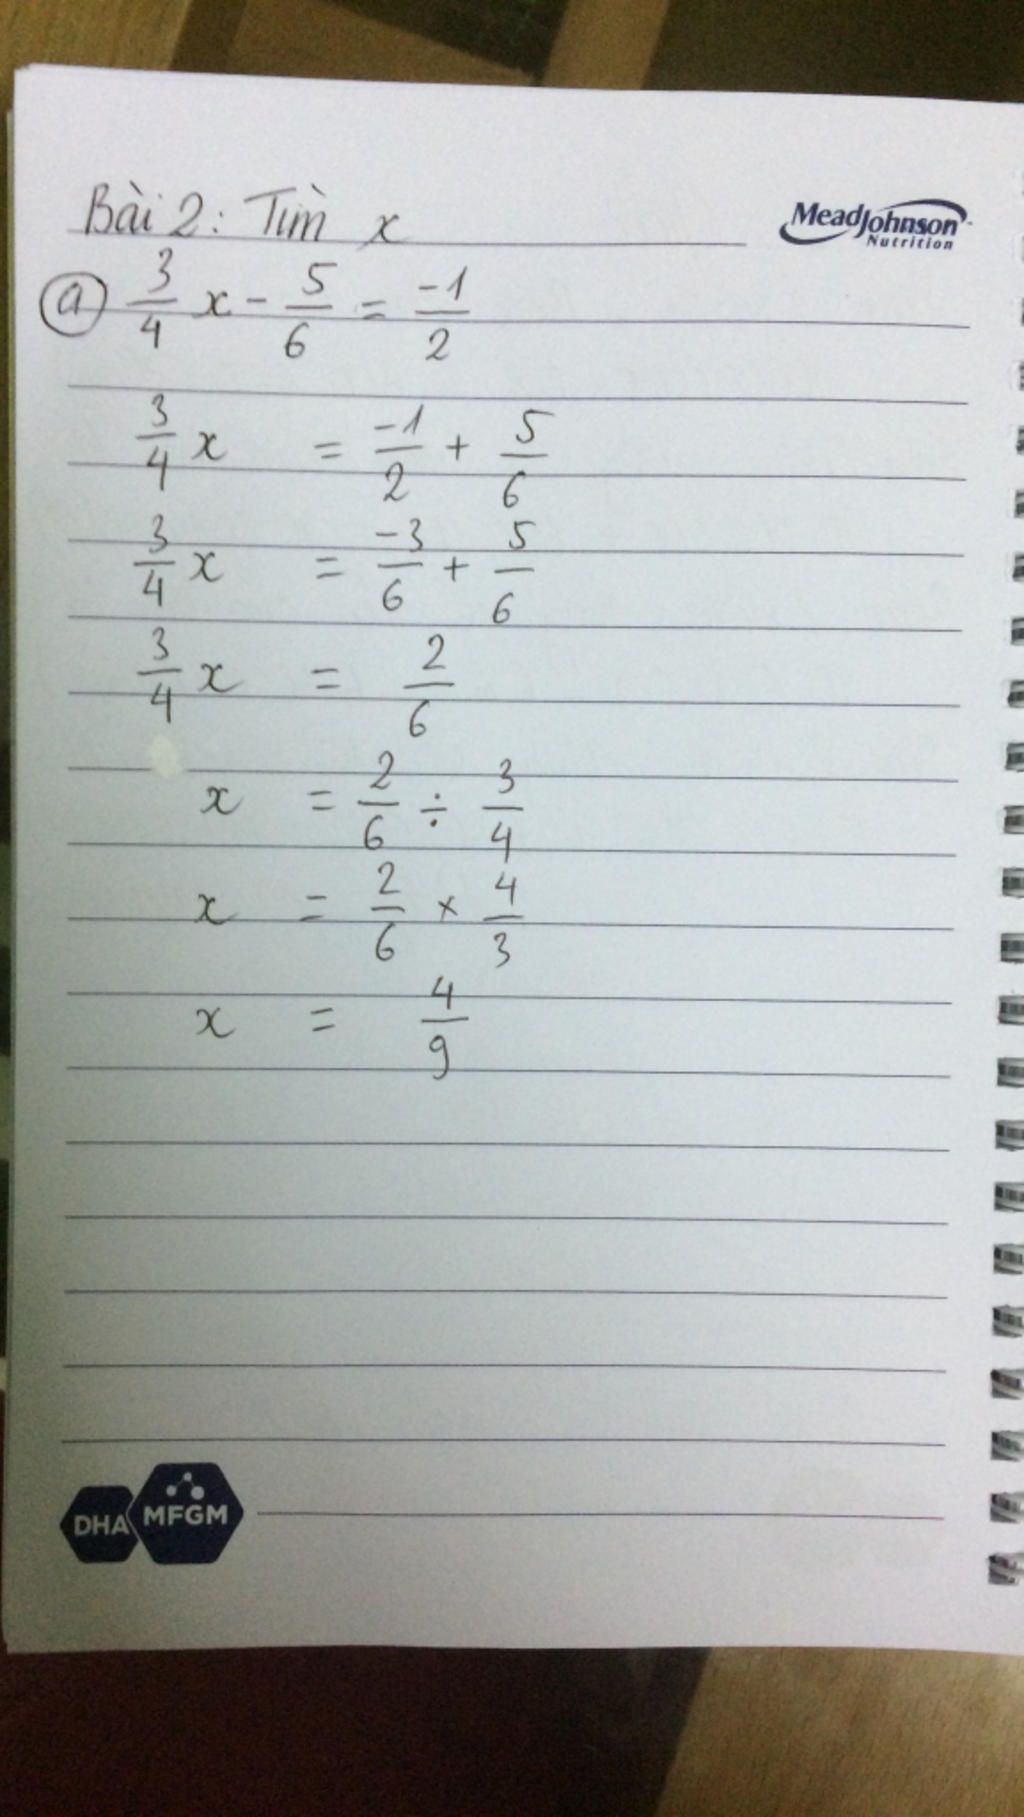 Bài 2: Tìm x
MeadJohnson
Nutrition
a) 3/4 x - 5/6 = -1/2
3/4 x = -1/2 + 5/6
3/4 x = -3/6 + 5/6
3/4 x = 2/6
x = 2/6 ÷ 3/4
x = 2/6 × 4/3
x = 4/9
DHA MFGM